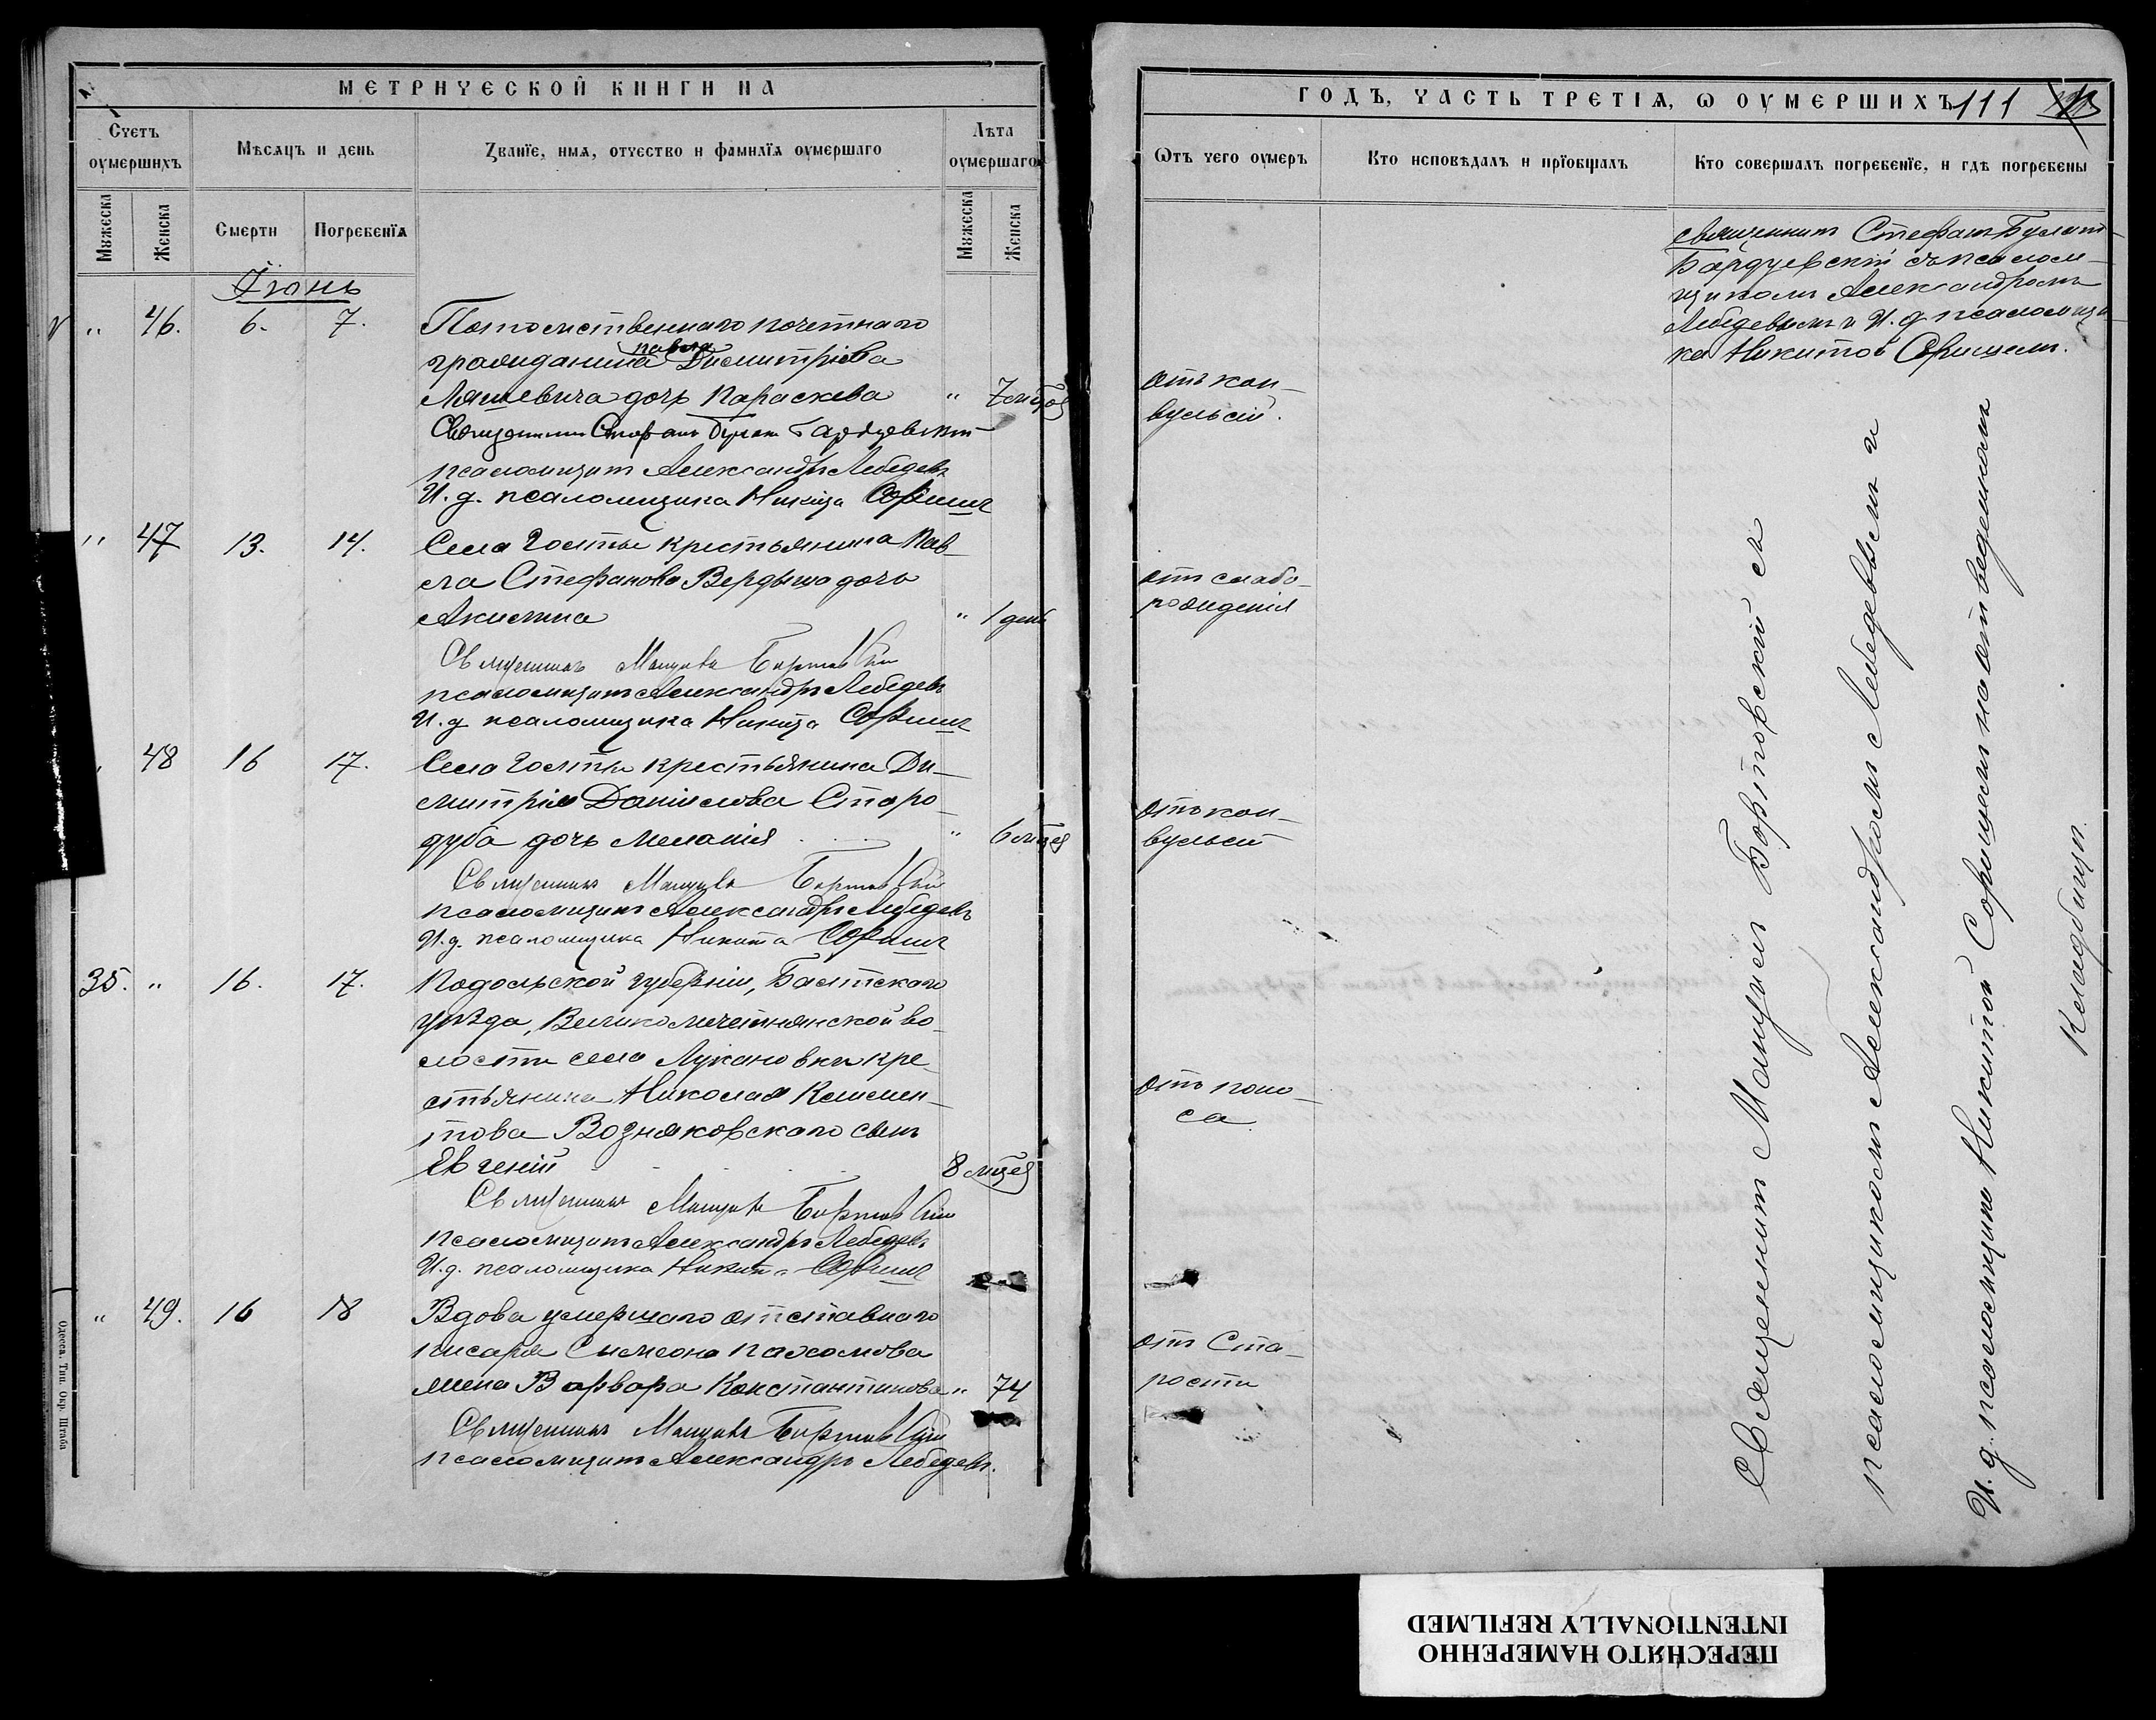 МЕТРИЧЕСКОЙ КНИГИ НА
Счетъ оумершихъ
Мѣсяцъ и день
Званїе, имя, отчество и фамилїя оумершаго
Лѣта оумершаго
Мужеска
Женска
Смерти
Погребенїя
Мужеска
Женска
Іюнь
" 46. 6. 7. Потомственнаго почетнаго
павла
гражданина Димитріева
Ляшевича дочь Параскева " 7 мцов
Священникъ Стефанъ Булат Бардуевскій
псаломщикъ Александръ Лебедевъ
И. д. псаломщика Никита
" 47 13. 14. Села Голты крестьянина Пав-
ла Стефанова Вердыша дочь
Акилина " 1 день
Священникъ Мануилъ Бортовскій
псаломщикъ Александръ Лебедевъ
И. д. псаломщика Никита
48 16 17. Села Голты крестьянина Ди-
митрія Данилова Старо-
дуба дочь Меланія " 6 мцев
Священникъ Мануилъ Бортовскій
псаломщикъ Александръ Лебедевъ
И. д. псаломщика Никита
35. " 16. 17. Подольской губерніи, Балтского
уѣзда, Великомечетнянской во-
лости села Лукановки кре-
стьянина Николая Клемен-
това Возняковскаго сынъ
Евгеній 8 мцев
Священникъ Мануилъ Бортовскій
псаломщикъ Александръ Лебедевъ
И. д. псаломщика Никита
" 49. 16 18 Вдова умершаго отставнаго
писаря Сымеона Пахомова
жена Варвара Константинова " 74
Священникъ Мануилъ Бортовскій
псаломщикъ Александръ Лебедевъ.
Одесса. Тип. Окр. Штаба
ГОДЪ, ЧАСТЬ ТРЕТІЯ, Ѡ ОУМЕРШИХЪ 111
Ѿтъ чего оумеръ
Кто исповѣдалъ и прїобщалъ
Кто совершалъ погребенїе, и гдѣ погребены
священникъ Стефанъ Булат-
Бардуевскій съ псалом-
щиком Александромъ
Лебедевымъ и И. д. псаломщи-
ка Никитой
отъ кон-
вульсій.
отъ слабо-
рожденія
отъ кон-
вульсій
отъ поно-
са
отъ Ста-
рости
Священникъ Мануилъ Бортовскій съ
псаломщикомъ Александромъ Лебедевымъ и
И. д. псаломщика Никитой на отведенномъ
Кладбищѣ.
ПЕРЕСНЯТО НАМЕРЕННО
INTENTIONALLY REFILMED